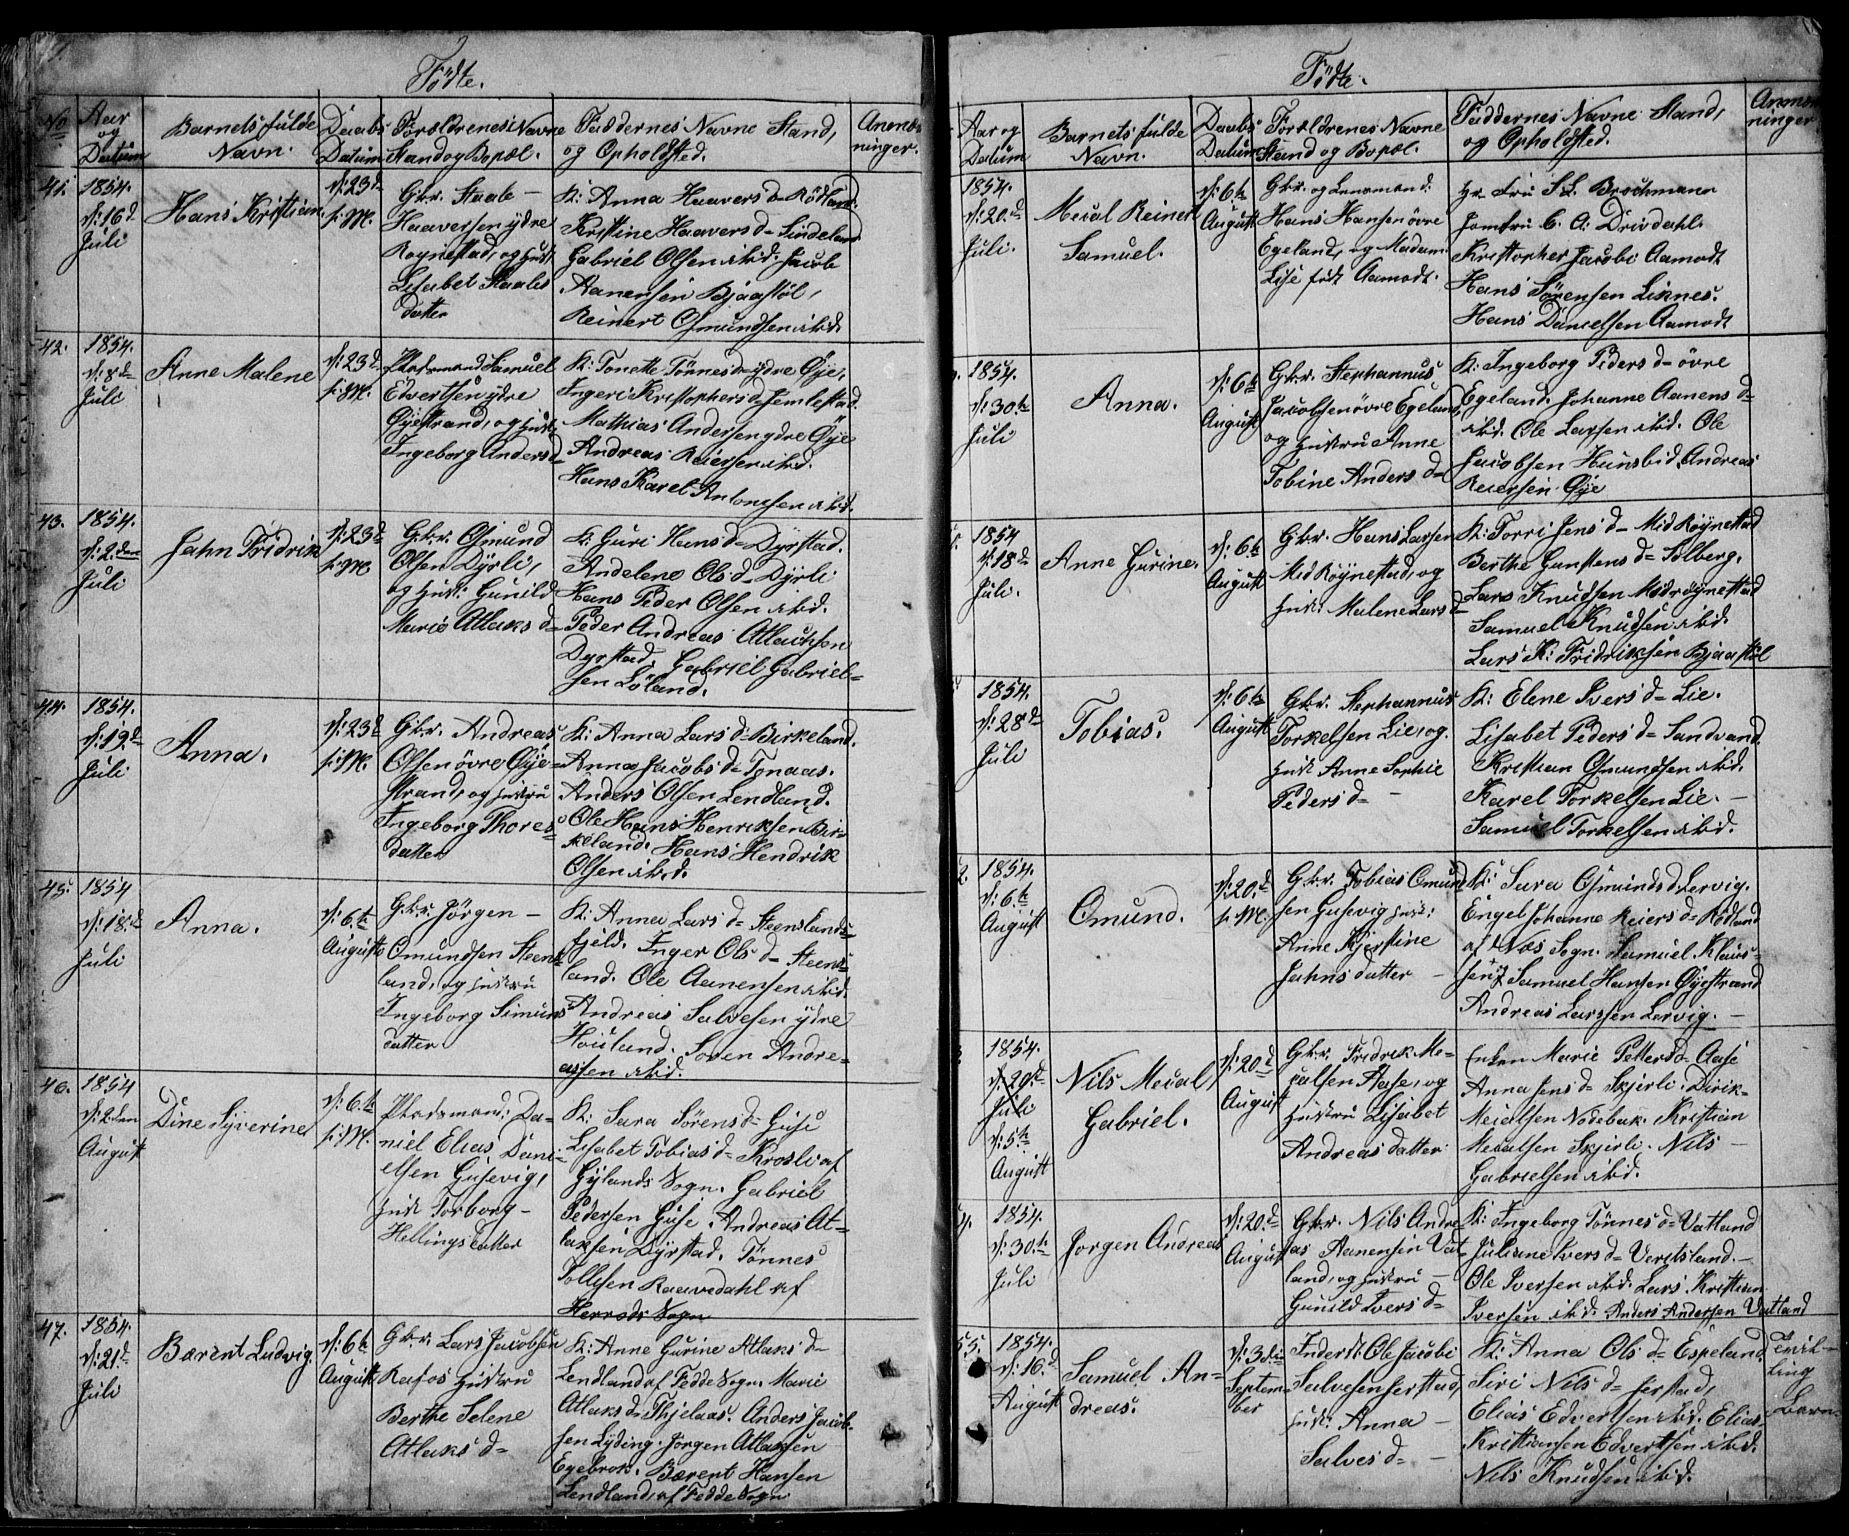 Fødte.
No
Aar
og
Datum
Barnets fulde
Navn.
Daabs
Datum
Forældrenes Navne
Stand og Bopæl.
Faddernes Navne Stand,
og Opholdsted.
Anmær-
ninger.
41.
1854.
d: 16d
Juli
Hans Kristian
d: 23d
s: M.
Gbr. Staale
Haaversen ydre
Røynestad, og Hust.
Lisabet Staales
datter
K: Anna Haavers d= Rødland.
Kristine Haavers d= Sindeland
Gabriel Olsen ibid. Jacob
Aanensen Bjaastøl,
Reinert Osmundsen ibid.
42.
1854.
d: 8de
Juli
Anne Malene
d: 23d
s: M.
Pladsmand Samuel
Edvertsen ydre
Øyestrand, og Hust.
Ingeborg Anders d=
K: Tonette Tønnes d= ydre Øye,
Ingeri Kristophers d= Jemlestad.
Mathias Andersen ydre Øye
Andreas Reiersen ibid.
Hans Karel Antonsen ibid.
43.
1854.
d: 2den
Juli
Jahn Fridrik
d: 23d
s: M.
Gbr. Osmund
Olsen Dyrli,
og Hust: Gunild
Marie Atlaks d=
K: Guri Hans d= Dyrstad.
Andelene Ols d= Dyrli
Hans Peder Olsen ibid.
Peder Andreas Atlaksen
Dyrstad. Gabriel Gabriel-
sen Løland.
44.
1854.
d: 19d
Juli
Anna.
d: 23d
s: M.
Gbr. Andreas
Olsen øvre Øye-
strand, og Hustru
Ingeborg Thores-
datter
K: Anna Lars d= Birkeland.
Anna Jacobs d= Tonaas.
Anders Olsen Lendland.
Ole Hans Henriksen Bir-
keland. Hans Hendrik
Olsen ibid.
45.
1854
d: 18d
Juli
Anna.
d: 6te
August
Gbr. Jørgen
Omundsen Steens-
land, og Hustru
Ingeborg Simons
datter
K: Anna Lars d= Steenslands-
fjeld. Inger Ols d= Steens-
land. Ole Aanensen ibid.
Andreas Salvesen ydre
Houland. Soren Andre-
assen ibid.
46.
1854
d: 2den
August
Dine Syverine
d: 6te
s: M.
Pladsmand: Da-
niel Elias Dani-
elsen Gusevig,
Hust Torborg
Hellings datter
K: Sara Sørens d= Guse
Lisabet Tobias d= Krosli af
Gylands Sogn. Gabriel
Pedersen Guse. Andreas At-
laksen Dyrstad. Tønnes
Tollefsen Raavedahl af
Herreds Sogn
47.
1854.
d: 21d
Juli
Bærent Ludvig.
d: 6te
August
Gbr. Lars Jacobsen
Rafos Hustru
Berthe Selene
Atlaks d=
K: Anne Gurine Atlaks d=
Lendland af Fedde Sogn. Marie
Atlaks d= Thjelaas. Anders Jacob-
sen Lyding. Jørgen Atlaksen
Egebrok. Bærent Hansen
Lendland, af Fedde Sogn
Fødte.
Aar og
Datum
Barnets fulde
Navn.
Daabs
Datum
Forældrenes Navne
Stand og Bopæl.
Faddernes Navne Stand,
og Opholdsted.
Anmær
ninger
1854.
d: 20d
Juli.
Meual Reinert
Samuel.
d: 6te
August
Gbr. og Lensmand:
Hans Hansen øvre
Egeland, og Madam
Lise født Aamodt.
Hr. Fru S. L. Brochmann
Jomfru C. A. Drivdahl.
Kristopher Jacobi Aamodt
Hans Sørensen Lisnes.
Hans Danielsen Aamodt
1854.
d: 30te
Juli
Anna.
d: 6te
August
Gbr. Stephannus
Jacobsen øvre Egeland
og Hustru Anne
Tobine Anders d=
K: Ingeborg Peders d= øvre
Egeland. Johanne Aanens d=
ibid. Ole Larsen ibid. Ole
Jacobsen Hunsbid. Andreas
Reiersen Øye
1854
d: 18d
Juli.
Anne Gurine.
d: 6te
August
Gbr. Hans Larsen
Mid Røynestad, og
Hust. Malene Lars d=
K: Torri Jens d= Mid Røynestad
Berthe Gunstens d= Solberg.
Lars Knudsen Midrøynestad
Samuel Knudsen ibid.
Lars K: Fridriksen Bjaastøl
1854.
d: 28d
Juli
Tobias.
d: 6te
August
Gbr. Stephannus
Torkelsen Lie, og
Hust Anne Sophie
Peders d=
K: Elene Ivers d= Lie.
Lisabet Peders d= Sandvand
Kristian Osmundsen ibid.
Karel Torkelsen Lie.
Samuel Torkelsen ibid.
2.
1854.
d: 6te
August
Omund.
d: 20d
s: M.
Gbr. Tobias Omund-
sen Gusevig Hust:
Anne Kjerstine
Jahnsdatter
K: Sara Osmunds d= Lervig.
Engel Johanne Reiers d= Rødland
af Næs Sogn. Samuel Klaus-
sen, Samuel Hansen Øyestrand
Andreas Larssen Lervig.
1854.
d: 29d
Juli
d: 5te
August
Nils Meual
Gabriel.
d: 20d
August
Gbr. Fridrik Me-
ualsen Aase, og
Hustru Lisabet
Andreas datter
Enken Marie Petters d= Aase
Anna Jens d= Skjerli. Dirik
Meualsen Nodebak. Kristian
Meualsen Skjerli. Nils
Gabrielsen ibid.
1854.
d: 30te
Juli
Jorgen Andreas
d: 20d
August
Gbr. Nils Andre
as Aanensen Vat-
land, og Hustru
Gunild Ivers d=
K: Ingeborg Tønnes d= Vatland
Juliane Ivers d= Veritsland.
Ole Iversen ibid. Lars Kristian
Iversen ibid. Anders Andersen Vatland
55.
1854.
d: 16d
August
Samuel An-
dreas.
d: 3die
Septem-
ber
Inderst Ole Jacobi
Salvesen Jerstad,
Hust: Anna
Salves d=
K: Anna Ols d= Espeland.
Siri Nils d= Jerstad,
Elias Edvertsen ibid. Elias
Kristiansen Edvertsen ibid.
Nils Knudsen ibid.
Tvil-
ling
barn.